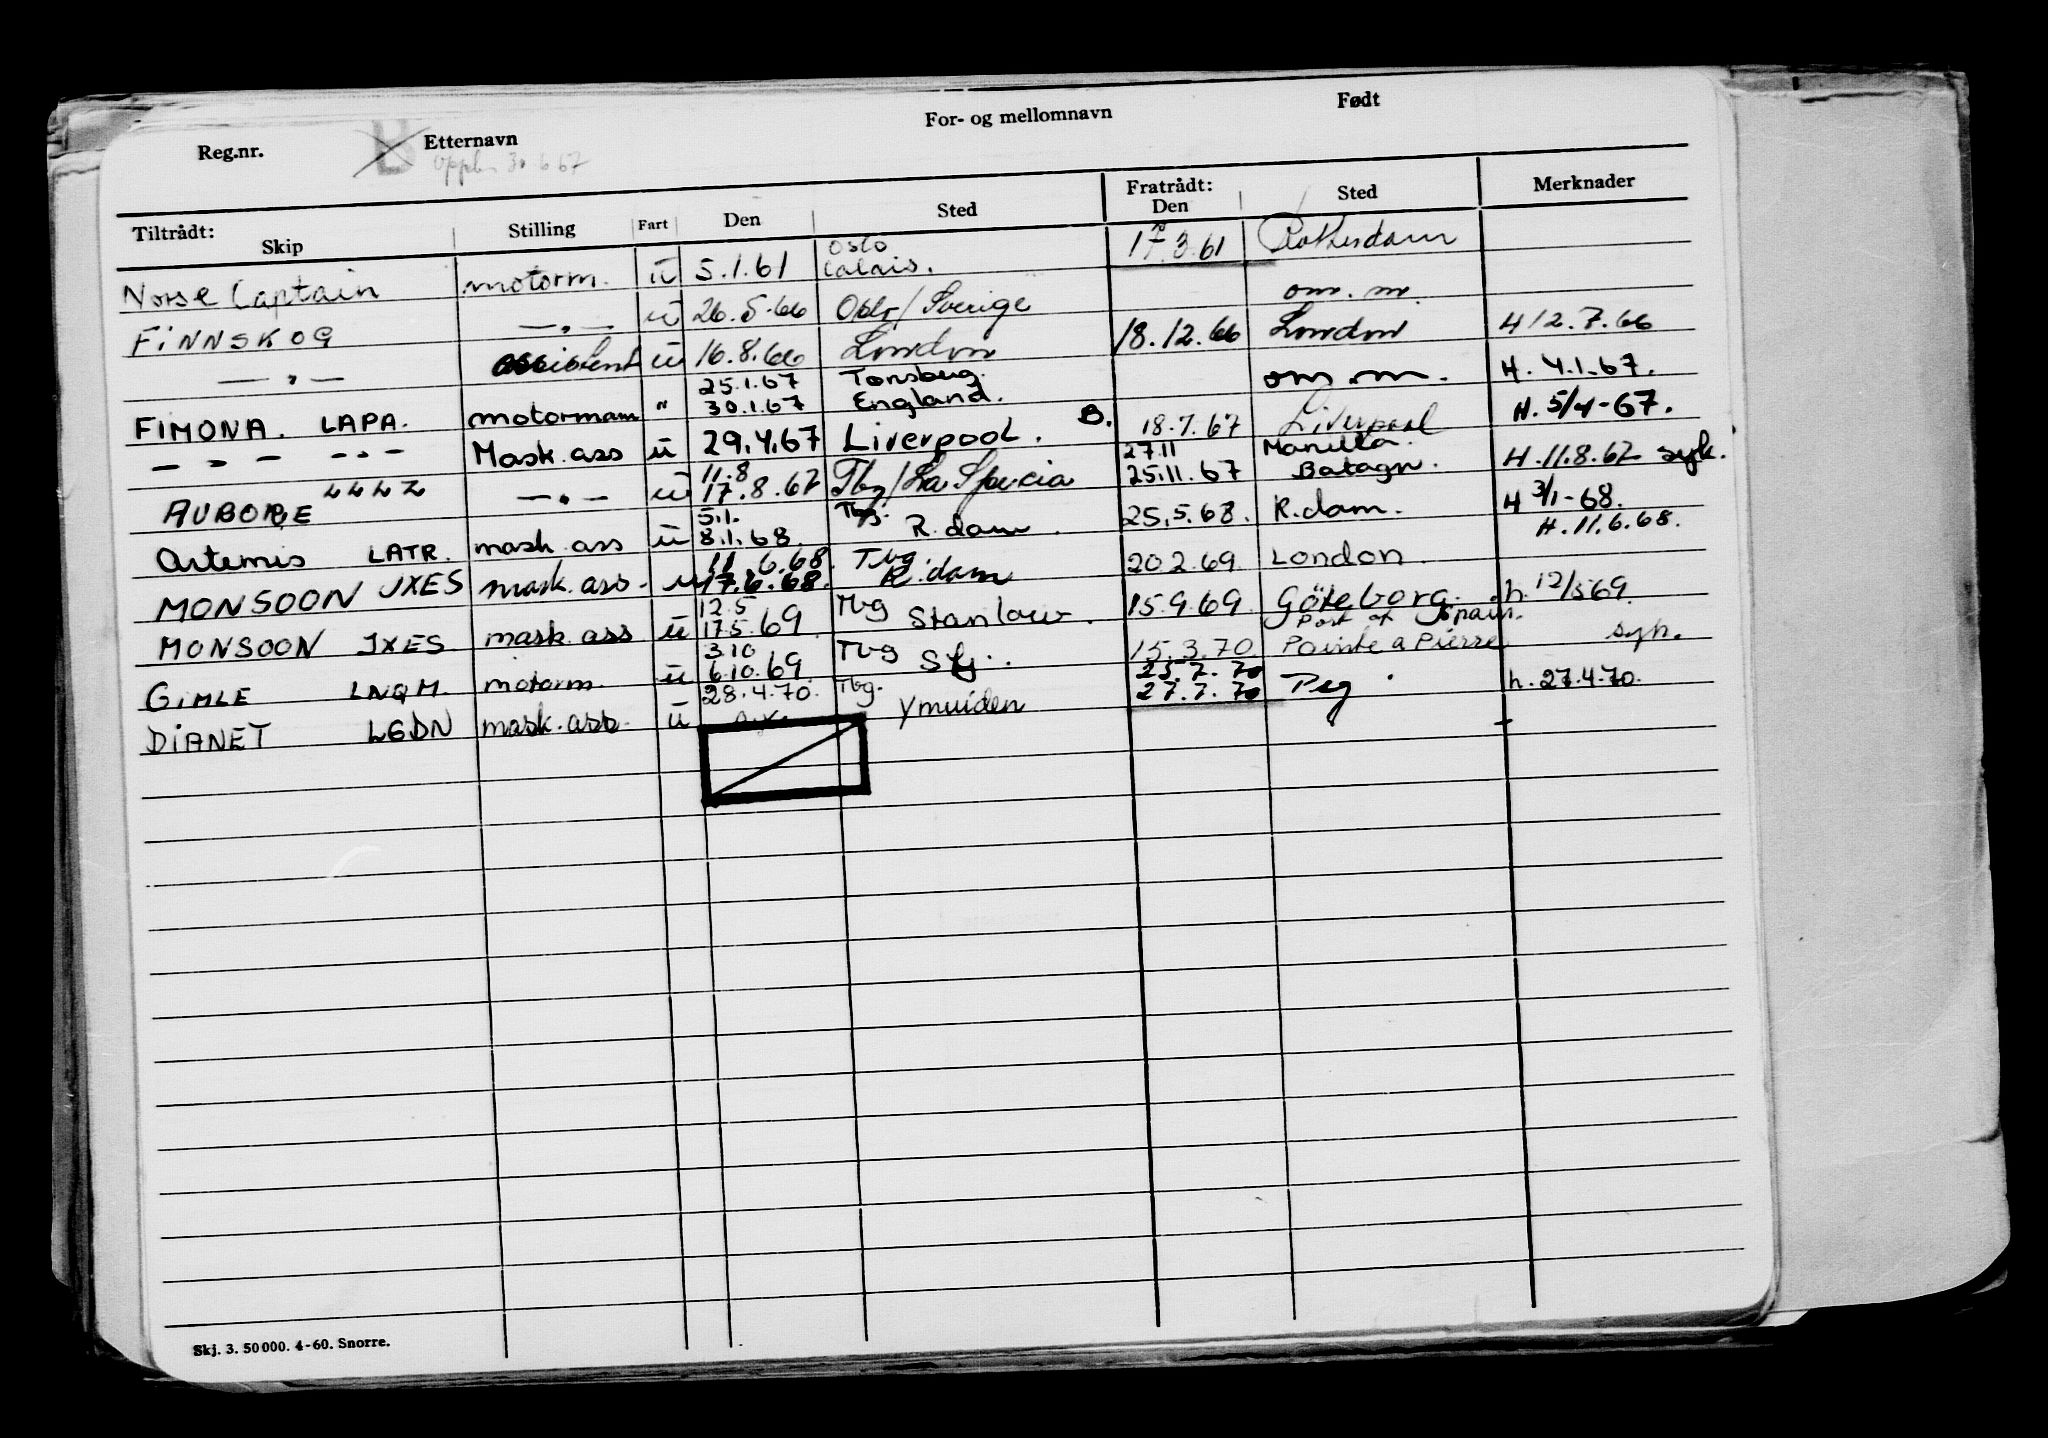 Reg.nr. B Etternavn For- og mellomnavn Født
30.6.67
Tiltrådt: Skip Stilling Fart Den Sted Fratrådt: Den Sted Merknader
Norse Captain motorm. ü 5.1.61 Oslo Calais. 17.3.61 Rotterdam
FINNSKOG — " — ü 26.5.66 Oslo/Sverige om. m.
— " — assistent ü 16.8.66 London 18.12.66 London H 12.7.66
FIMONA. LAPA. motormann " 25.1.67 30.1.67 Tønsberg. England. om. m. H. 4.1.67.
— " — — " — Mask.ass ü 29.4.67 Liverpool. B. 18.7.67 Liverpool H. 5/4-67.
AURORE LLLZ — " — ü 11.8 17.8.67 Tbg/La Spezia 27.11 25.11.67 Manilla. Batagn. H. 11.8.67 syk.
Artemis LATR. mask.ass ü 5.1. 8.1.68. Tbg. R.dam. 25.5.68. R.dam. H 3/1-68.
H. 11.6.68.
MONSOON JXES mask.ass. ü 11.6.68. 17.6.68. Tbg. R.dam 20.2.69. London.
MONSOON JXES mask.ass ü 12.5 17.5.69 Tbg Stanlow. 15.9.69. Göteborg. h. 12/5 69.
GIMLE LNQM. motorm. ü 3.10 6.10.69. Tbg Sfj. 15.3.70. Port of Spain. Pointe a Pierre syk.
DIANET LGDN mask.ass. ü 28.4.70. Tbg. Ymuiden 25.7.70 27.7.70 Peg. h. 27.4.70.
Skj. 3. 50 000. 4-60. Snorre.